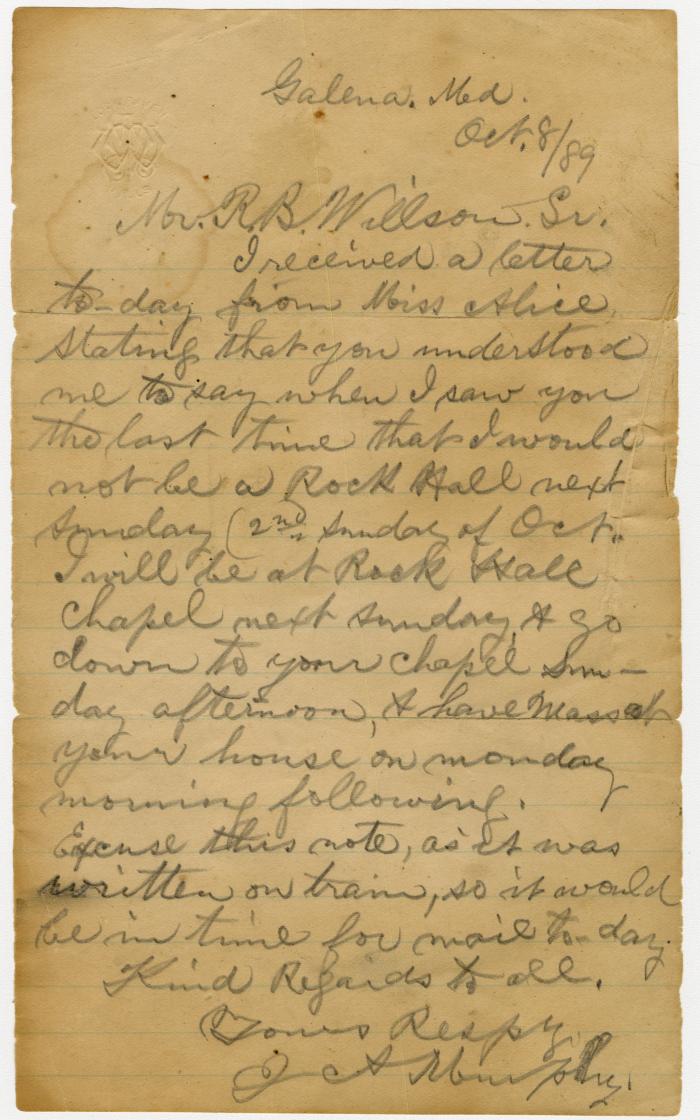 Galena. Md.
Oct. 8/89
Mr. R. B. Willson. Sr.
I received a letter
to-day from Miss Alice
stating that you understood
me to say when I saw you
the last time that I would
not be a Rock Hall next
sunday (2nd sunday of Oct.
I will be at Rock Hall
chapel next sunday, & go
down to your chapel Sun-
day afternoon, & have Mass at
your house on monday
morning following.
Excuse this note, as it was
written on train, so it would
be in time for mail to-day.
Kind Regards to all.
Yours Respy,
J A Murphy.